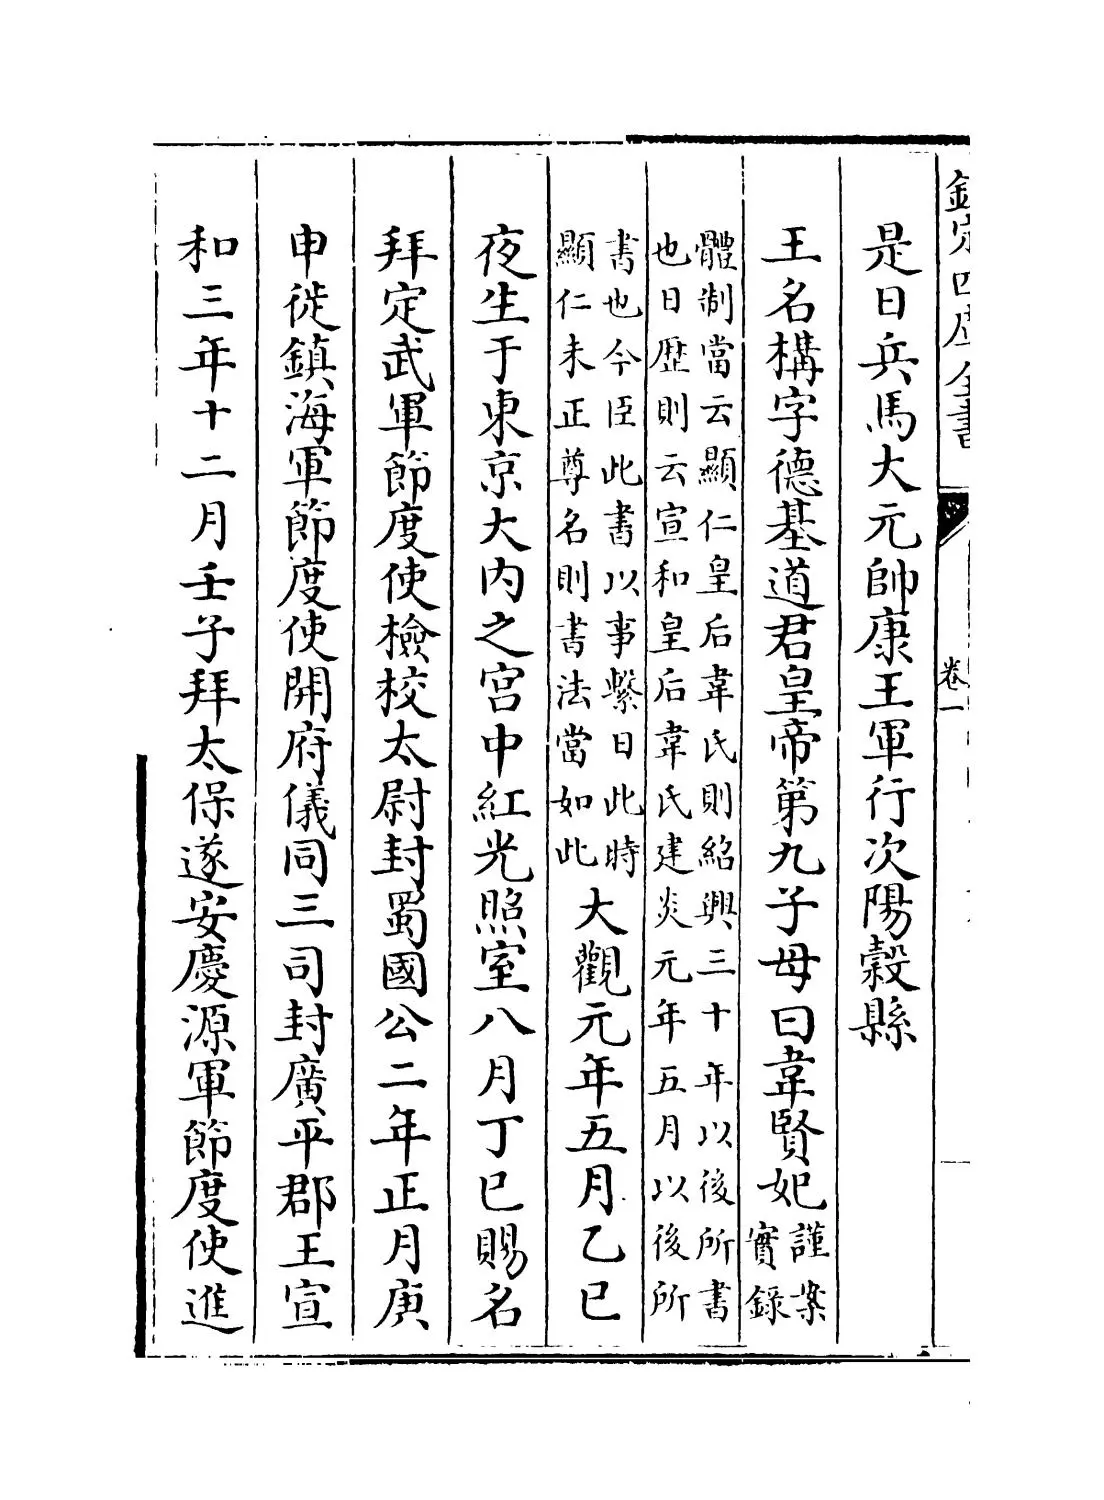 欽定四庫全書
卷一
是日兵馬大元帥康王軍行次陽穀縣
王名構字德基道君皇帝第九子母曰韋賢妃謹案
實錄
體制當云顯仁皇后韋氏則紹興三十年以後所書
也日歴則云宣和皇后韋氏建炎元年五月以後所
書也今臣此書以事繫日此時
顯仁未正尊名則書法當如此
大觀元年五月乙巳
夜生于東京大内之宫中紅光照室八月丁巳賜名
拜定武軍節度使檢校太尉封蜀國公二年正月庚
申徙鎮海軍節度使開府儀同三司封廣平郡王宣
和三年十二月壬子拜太保遂安慶源軍節度使進